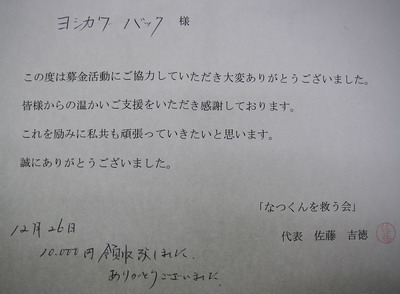 ヨシカワ バック 様
この度は募金活動にご協力していただき大変ありがとうございました。
皆様からの温かいご支援をいただき感謝しております。
これを励みに私共も頑張っていきたいと思います。
誠にありがとうございました。
「なつくんを救う会」
代表 佐藤 吉徳
12月26日
10.000円領収致しました。
ありがとうございました。